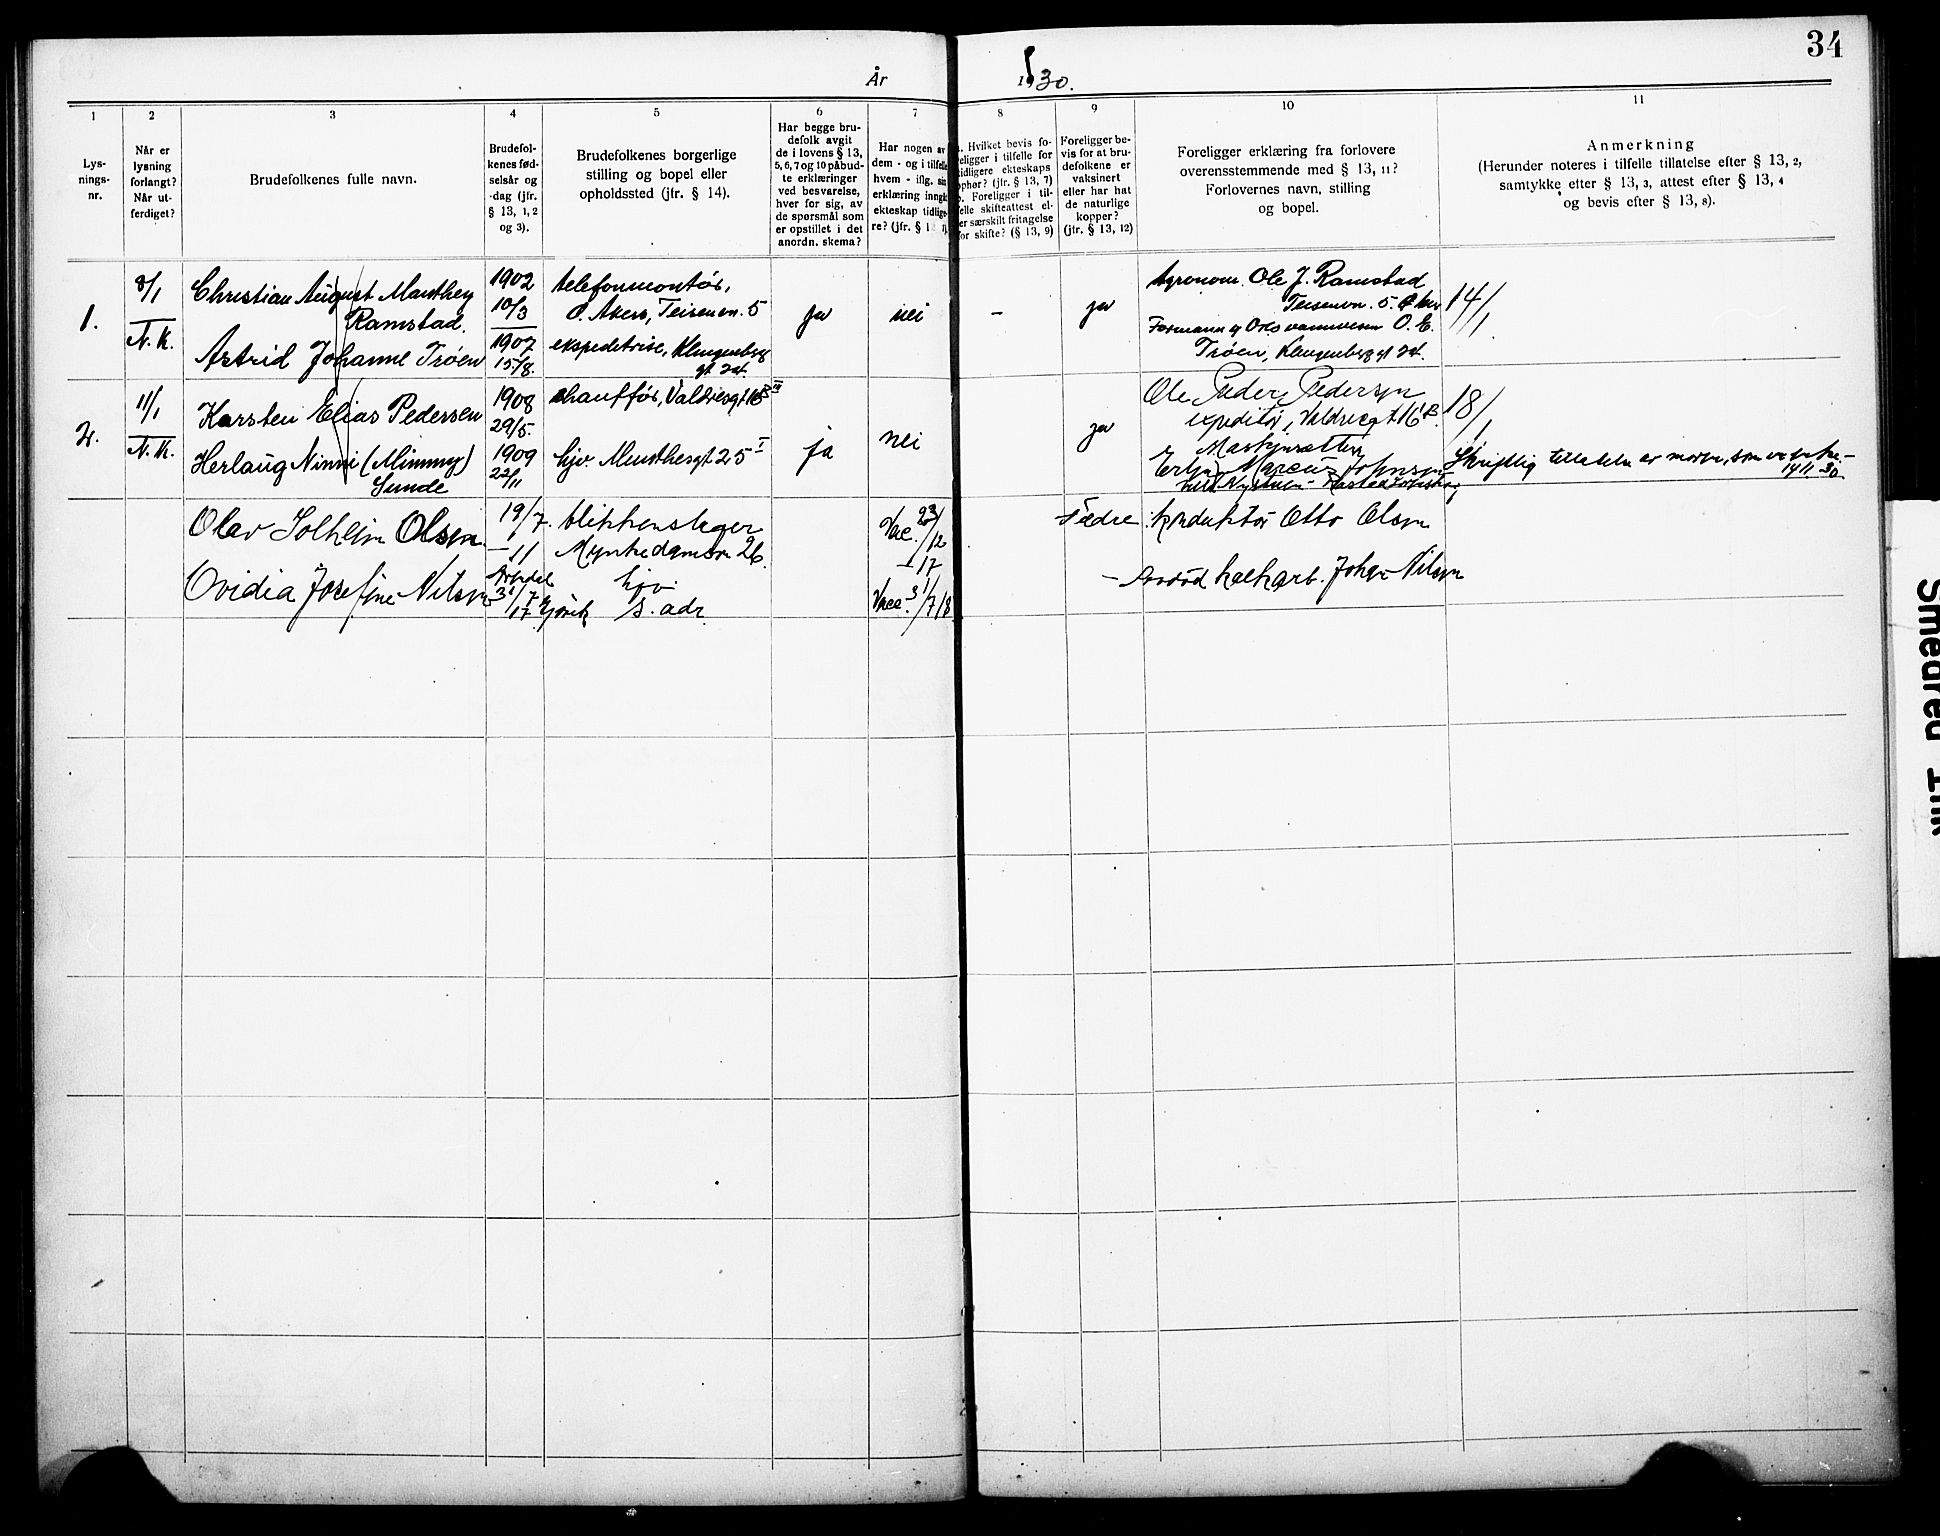 34
År 1930.
1
Lys-
nings-
nr.
2
Når er
lysning
forlangt?
Når ut-
ferdiget?
3
Brudefolkenes fulle navn.
4
Brudefol-
kenes fød-
selsår og
-dag (jfr.
§ 13, 1, 2
og 3).
5
Brudefolkenes borgerlige
stilling og bopel eller
opholdssted (jfr. § 14).
6
Har begge bru-
defolk avgit
de i lovens § 13,
5, 6, 7 og 10 påbud-
te erklæringer
ved besvarelse,
hver for sig, av
de spørsmål som
er opstillet i det
anordn. skema?
7
Har nogen av
dem - og i tilfelle
hvem - iflg. sin
erklæring inngå
ekteskap tidlige-
re? (jfr. § 1
8
. Hvilket bevis fo-
religger i tilfelle for
tidligere ekteskaps
ophør? (jfr. § 13, 7)
b. Foreligger i til-
felle skifteattest el-
er særskilt fritagelse
for skifte? (§ 13, 9)
9
Foreligger be-
vis for at bru-
defolkene er
vaksinert
eller har hat
de naturlige
kopper?
(jfr. § 13, 12)
10
Foreligger erklæring fra forlovere
overensstemmende med § 13, 11?
Forlovernes navn, stilling
og bopel.
11
Anmerkning
(Herunder noteres i tilfelle tillatelse efter § 13, 2,
samtykke efter § 13, 3, attest efter § 13, 4
og bevis efter § 13, 8).
1.
8/1
N. K.
Christian August Manthey
Ramstad.
Astrid Johanne Trøen
1902
10/3
1907
15/8.
telefonmontør,
Ø. Aker, Teisenvn. 5
ekspeditrise, Klingenberg
gt 24.
ja
nei
-
ja
Agronom Ole J. Ramstad
Teisenvn. 5. Ø. Aker
Formann v/ Oslo vannvesen O. E.
Trøen, Klingenberggt 24.
14/1
2.
11/1
N. K.
Karsten Elias Pedersen
Herlaug Ninni (Mimmy)
Sunde
1908
29/5.
1909
22/11
chauffør, Valdresgt 16 B III
hjv. Munthesgt 25 I
ja
nei
ja
Ole Peder Pedersen
expeditør, Valdresgt 16 B.
Marcus Johnsen
18/1
Skriftlig tillatelse er moren, som er enke.-
14/1. 30.
Olav Solheim Olsen
Ovidia Josefine Nilsen
19/7.
- 11
31/7
17
blikkenslager
Munkedamsvn 26.
hjv.
s. adr.
Vac. 23/12
- 17
Vacc. 31/7/8
Fedre
konduktør Otto Olsen
- Avdød Johan Nilsen
Smeared Ink